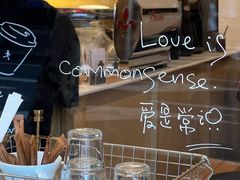 Love is
commonsense.
爱是常识!